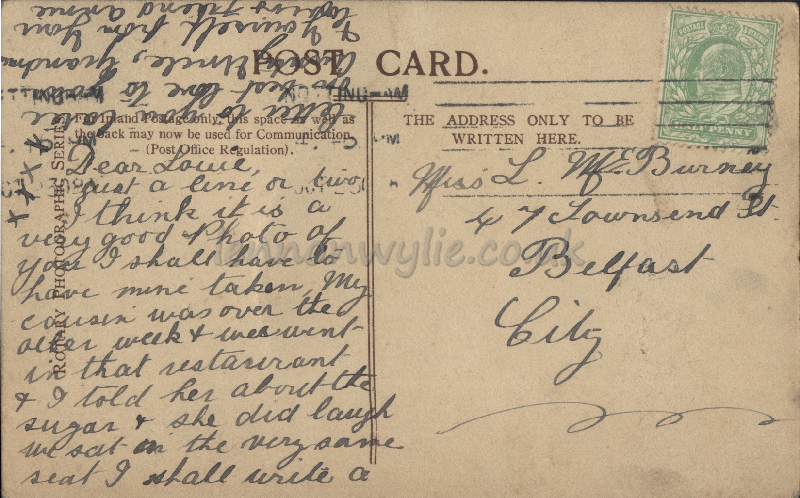 POST CARD.
For Inland Postage only, this space as well as
the back may now be used for Communication
(Post Office Regulation).
THE ADDRESS ONLY TO BE
WRITTEN HERE.
POSTAGE
HALF PENNY
ROTARY PHOTOGRAPHIC SERIES
Dear Louie,
Just a line or two
I think it is a
very good Photo of
you I shall have to
have mine taken, My
cousin was over the
other week & we went
in that restaurant
& I told her about the
sugar & she did laugh
we sat in the very same
seat I shall write a
letter to
best love to
Aunty, Uncle, Grandma
& Yourself from Your
loving friend
xxxx
Miss L. McE Burney
47 Townsend St.
Belfast
City
lennonwylie.co.uk